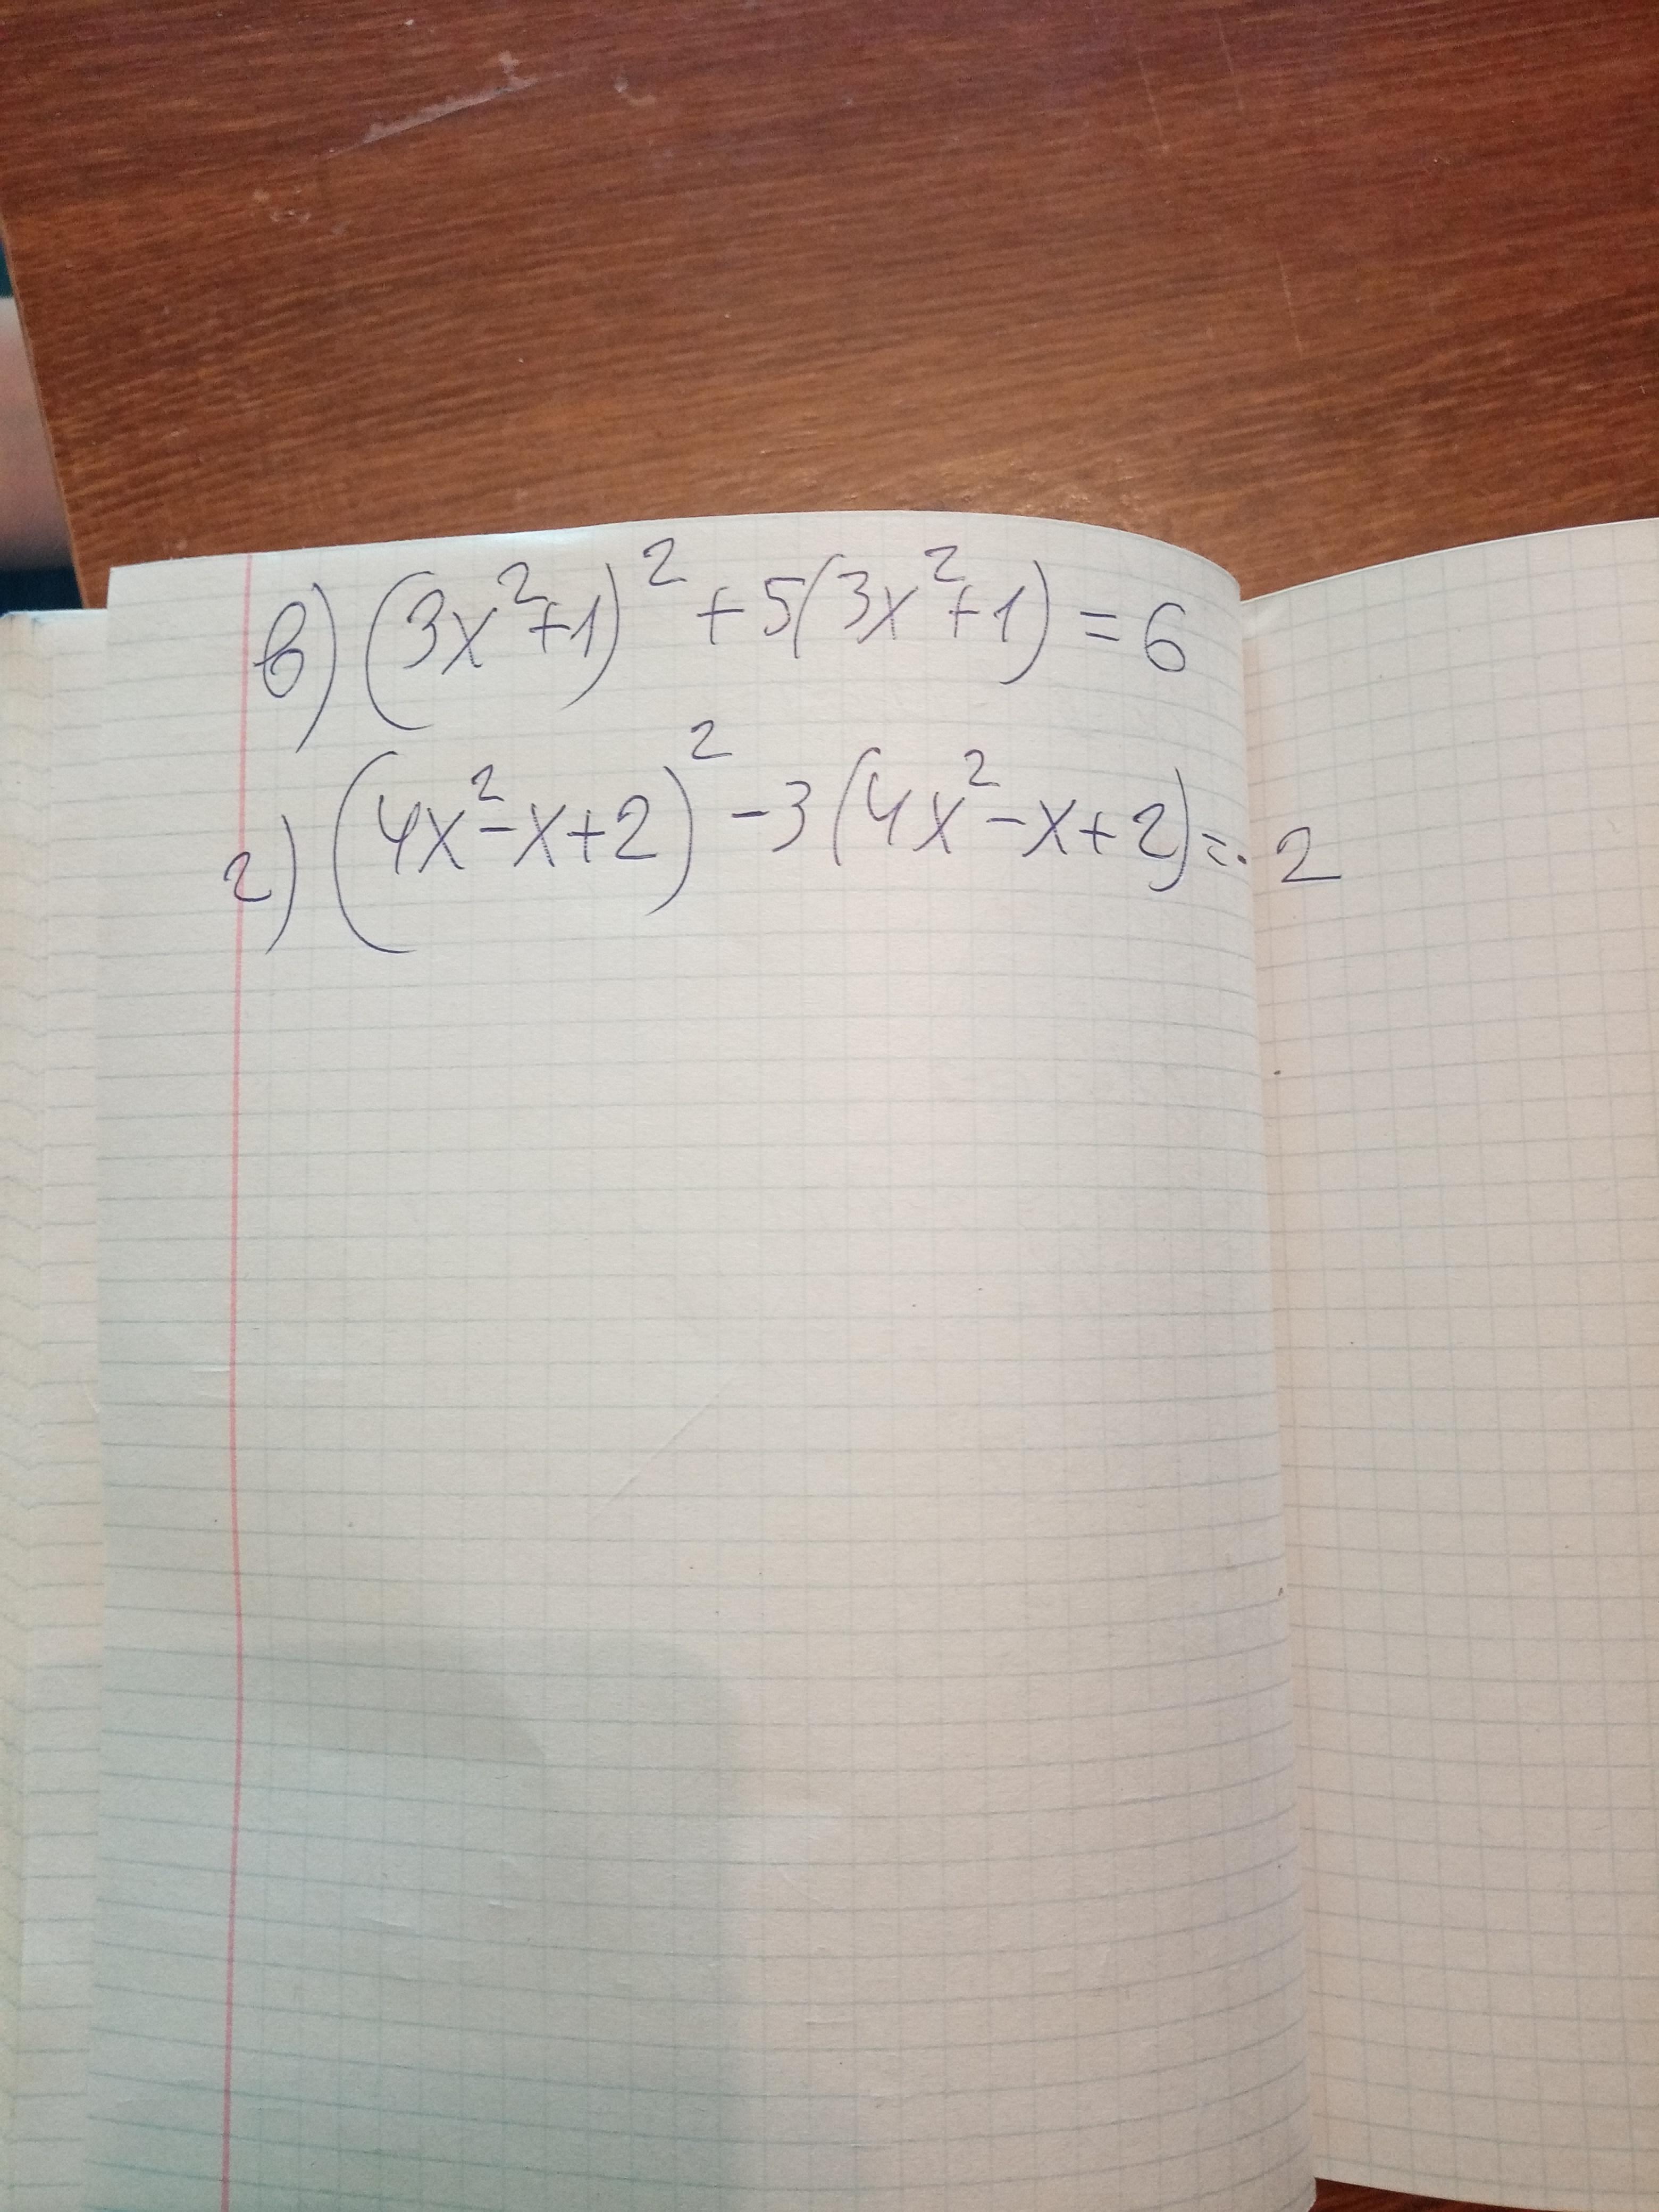 в) (3x²+1)² + 5(3x²+1) = 6
г) (4x²-x+2)² - 3(4x²-x+2) = -2